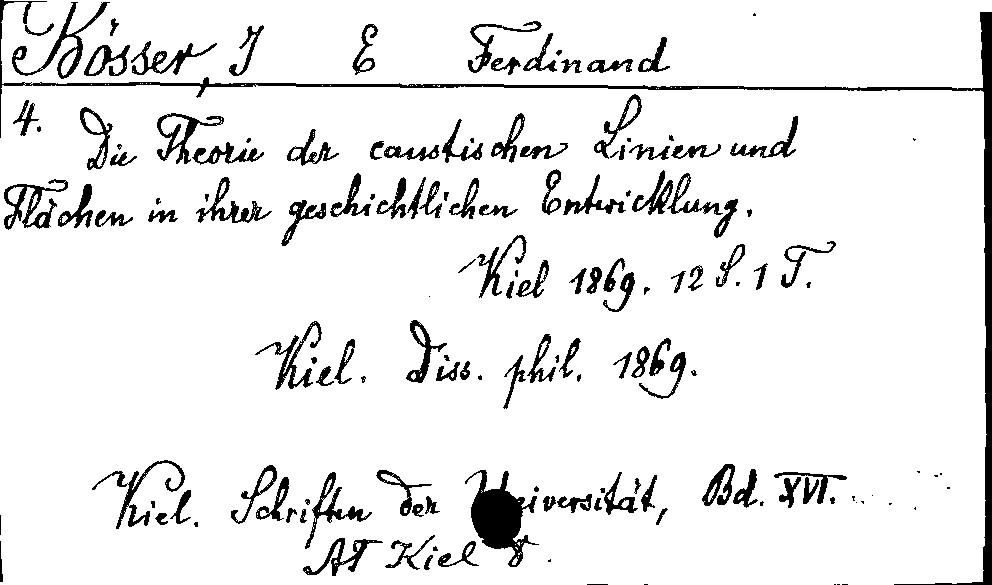 Bösser, J E Ferdinand
4.
Die Theorie der caustischen Linien und
Flächen in ihrer geschichtlichen Entwicklung.
Kiel 1869. 12 S. 1 T.
Kiel. Diss. phil. 1869.
Kiel. Schriften der Universität, Bd. XVI.
AT Kiel 8